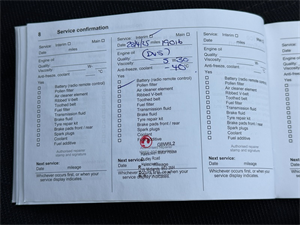 8
Service confirmation
Service: Interim Main
Date miles
Engine oil
Quality
Viscosity
Anti-freeze, coolant °C
Yes
Battery (radio remote control)
Pollen filter
Air cleaner element
Ribbed V-belt
Toothed belt
Fuel filter
Transmission fluid
Brake fluid
Tyre repair kit
Brake pads front / rear
Spark plugs
Coolant
Fuel additive
Authorised repairer
stamp and signature
Next service:
Date mileage
Whichever occurs first, or when your
service display indicates.
Service: Interim Main
Date miles
Engine oil
Quality
Viscosity 5-30
Anti-freeze, coolant -40 °C
Yes
Battery (radio remote control)
Pollen filter
Air cleaner element
Ribbed V-belt
Toothed belt
Fuel filter
Transmission fluid
Brake fluid
Tyre repair kit
Brake pads front / rear
Spark plugs
Coolant
Next service:
mileage
Whichever occurs first, or when your
service display indicates.
Service: Interim
Date
Engine oil
Quality
Viscosity
Anti-freeze, coolant
Yes
Battery (radio remote control)
Pollen filter
Air cleaner element
Ribbed V-belt
Toothed belt
Fuel filter
Transmission fluid
Brake fluid
Tyre repair kit
Brake pads front / rear
Spark plugs
Coolant
Fuel additive
Authorised repairer
stamp and signature
Next service:
Date mileage
Whichever occurs first, or when your
service display indicates.